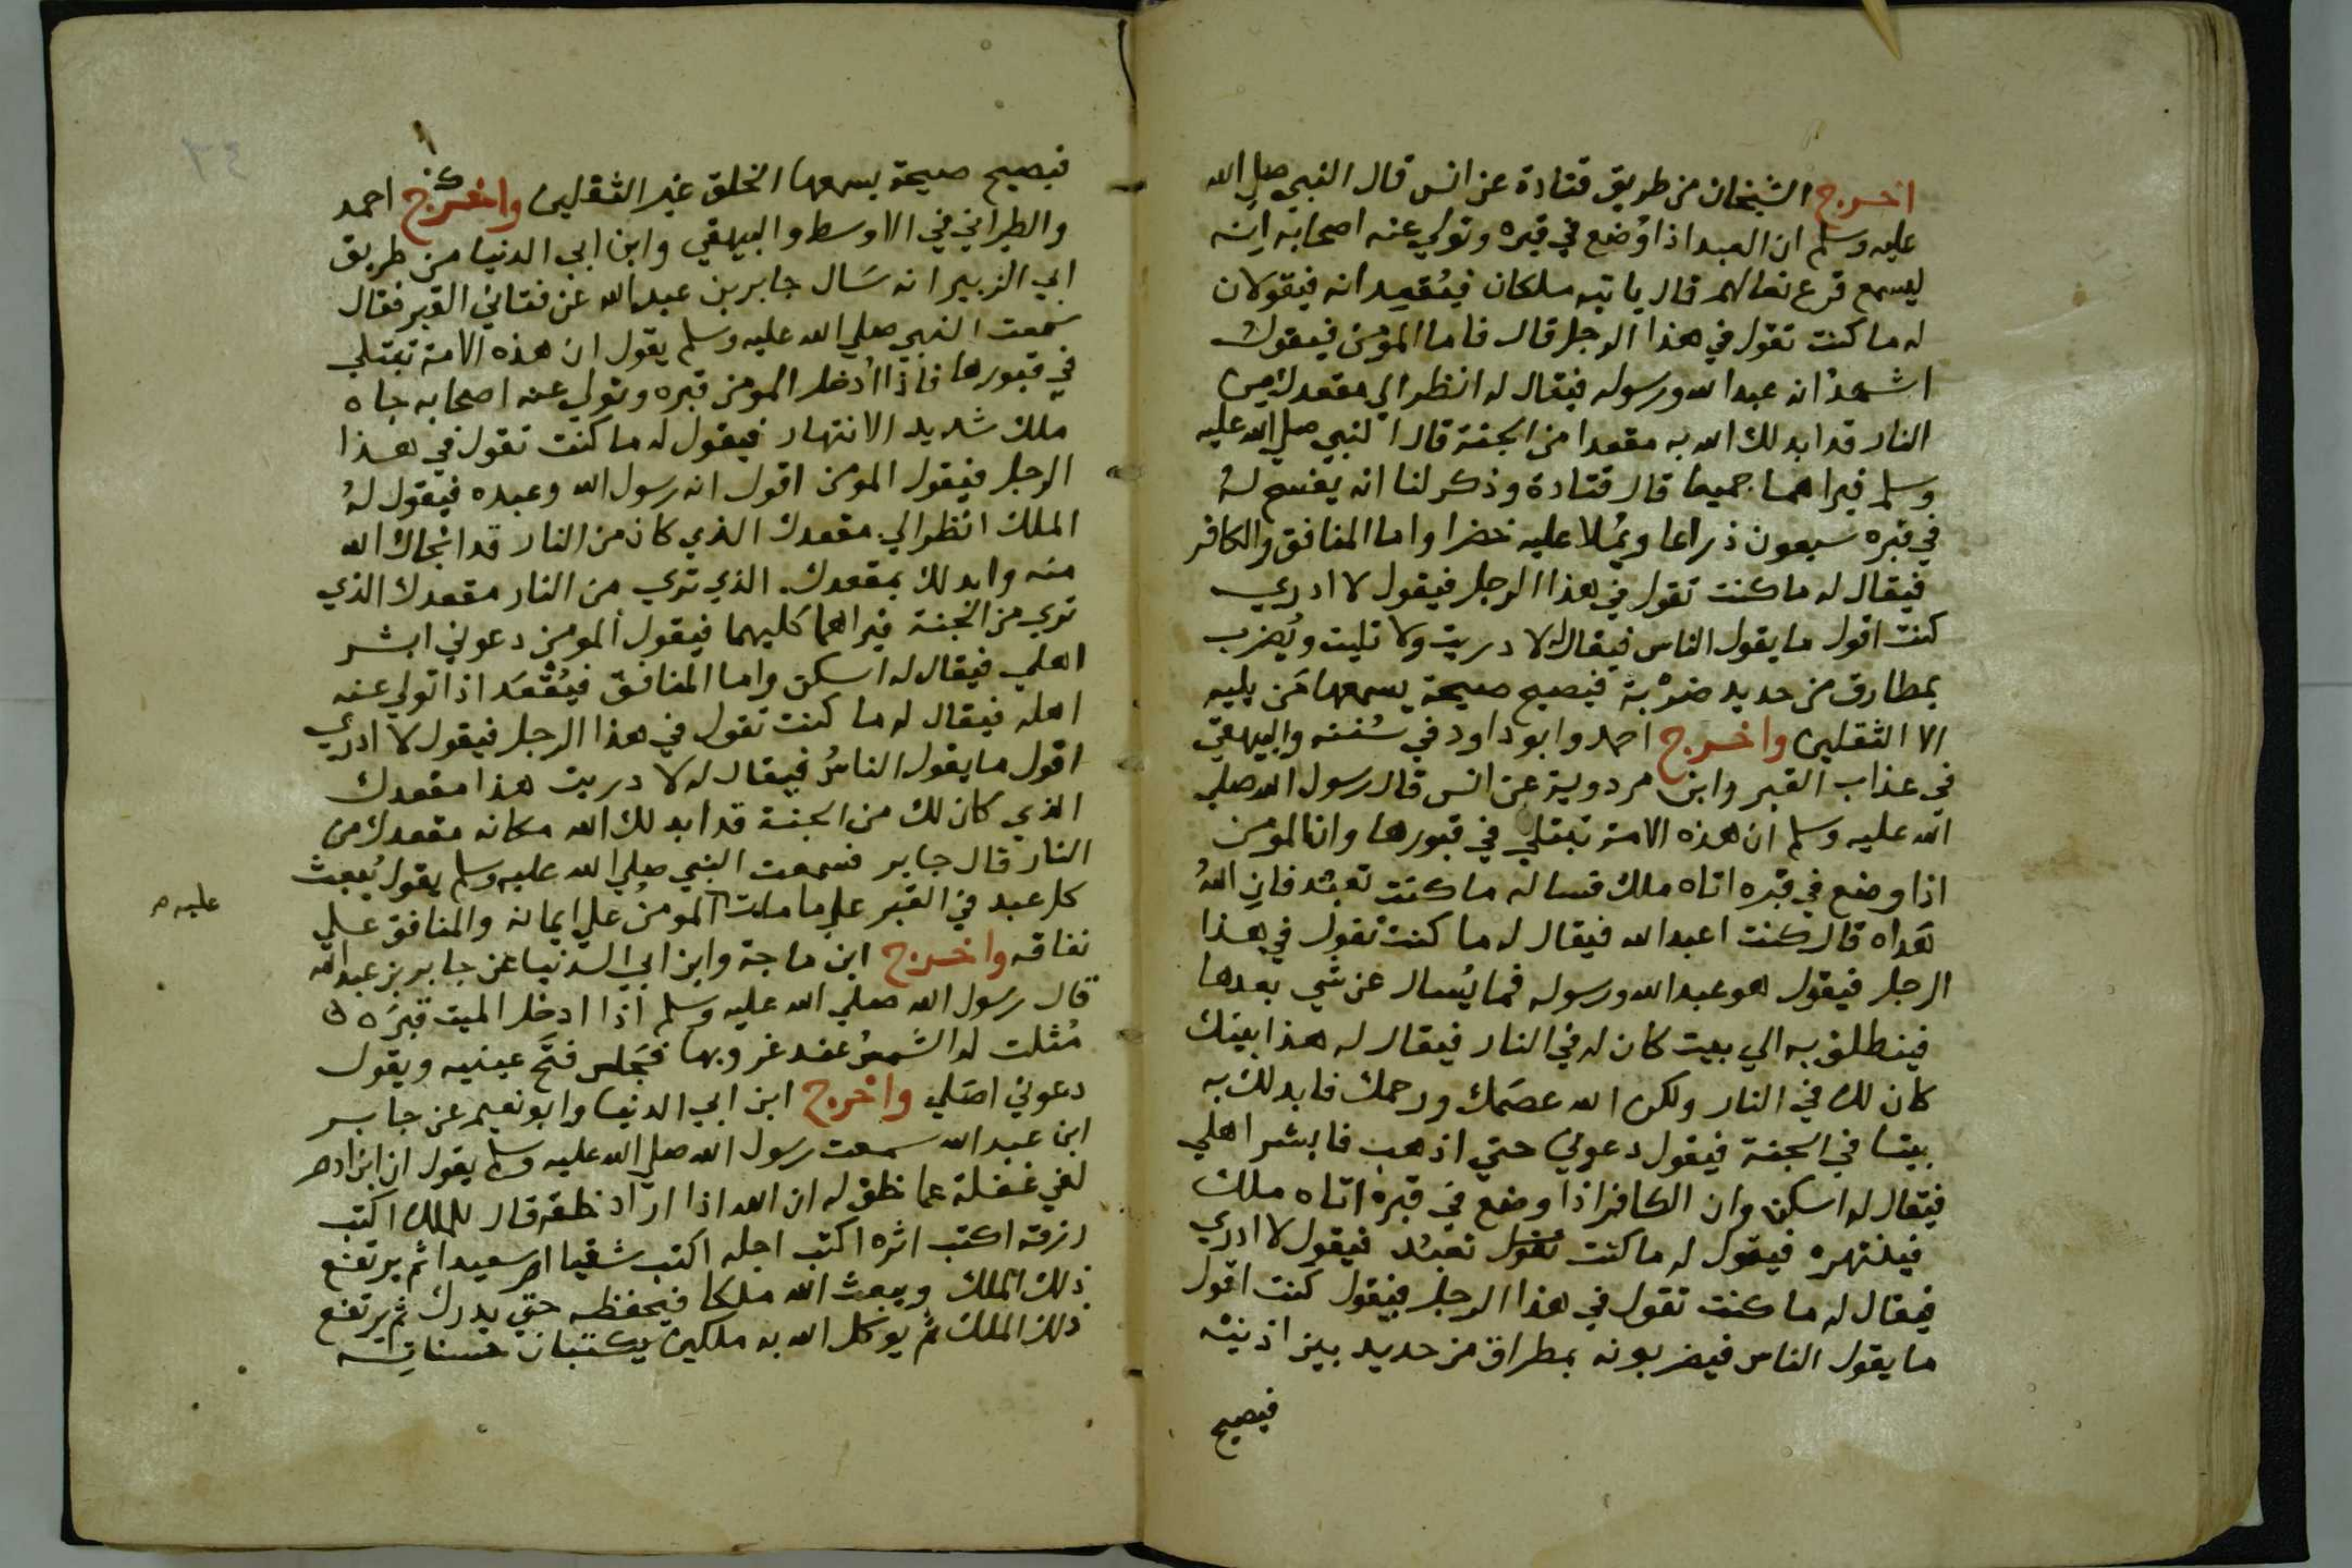 اخرج الشيخان من طريق قتادة عن انس قال النبي صلي الله
عليه وسلم ان العبد اذا وُضع في قبره وتولي عنه اصحابه انه
ليسمع قرع نعالهم قال ياتيه ملكان فيُقعِدانه فيقولان
له ما كنت تقول في هذا الرجل قال فاما المؤمن فيقول
اشهد انه عبد الله ورسوله فيقال له انظر الي مقعدك من
النار قد ابدلك الله به مقعدا من الجنة قال النبي صلي الله عليه
وسلم فيراهما جميعا قال قتادة وذكر لنا انه يفسح له
في قبره سبعون ذراعا ويُملا عليه خضرا واما المنافق والكافر
فيقال له ما كنت تقول في هذا الرجل فيقول لا ادري
كنت اقول ما يقول الناس فيقال له لا دريت ولا تليت ويُضرب
بمطارق من حديد ضرْبة فيصيح صيحة يسمعها مَن يليه
الا الثقلين واخرج احمد وابو داود في سُننه والبيهقي
في عذاب القبر وابن مردوية عن انس قال رسول الله صلي
الله عليه وسلم ان هذه الامة تبتلي في قبورها وان المؤمن
اذا وضع في قبره اتاه ملك فساله ما كنت تعبُد فانِ اللهُ
هَداه قال كنت اعبد الله فيقال له ما كنت تقول في هذا
الرجل فيقول هو عبد الله ورسوله فما يُسال عن شي بعدها
فينطلق به الي بيت كان له في النار فيقال له هذا بيتك
كان لك في النار ولكن الله عصَمك ورحمك فابدلك به
بيتا في الجنة فيقول دعوني حتي اذهب فابشر اهلي
فيقال له اسكن وان الكافر اذا وضع في قبره اتاه ملك
فينتهره فيقول له ما كنت تقول تعبُد فيقول لا ادري
فيقال له ما كنت تقول في هذا الرجل فيقول كنت اقول
ما يقول الناس فيضربونه بمطراق من حديد بين اذنيه
فيصيح
فيصيح صيحة يسمعها الخلق غير الثقلين واخرج احمد
والطبراني في الاوسط والبيهقي وابن ابي الدنيا من طريق
ابي الزبير انه سَال جابر بن عبد الله عن فتاني القبر فقال
سمعت النبي صلي الله عليه وسلم يقول ان هذه الامة تبتلي
في قبورها فاذا اُدخل المومن قبره وتولي عنه اصحابه جاه
ملك شديد الانتهار فيقول له ما كنت تقول في هذا
الرجل فيقول المومن اقول انه رسول الله وعبده فيقول لهُ
الملك انظر الي مقعدك الذي كان من النار قد انجاك الله
منه وابدلك بمقعدك الذي تري من النار مقعدك الذي
تري من الجنة فيراهما كليهما فيقول المومن دعوني ابشر
اهلي فيقال له اسكن واما المنافق فيُقْعَد اذا تولي عنه
اهله فيقال له ما كنت تقول في هذا الرجل فيقول لا ادري
اقول ما يقول الناسُ فيقال له لا دريت هذا مقعدك
الذي كان لك من الجنة قد ابدلك الله مكانه مقعدك من
النار قال جابر فسمعت النبي صلي الله عليه وسلم يقول يُبعث
كل عبد في القبر علي ما مات المومنُ علي ايمانه والمنافق علي
عليه
نفاقه واخرج ابن ماجة وابن ابي الدنيا عن جابر بن عبد الله
قال رسول الله صلي الله عليه وسلم اذا ادخل الميت قبرَه
مُثلت له الشمسُ عند غروبها فيَجلس فتَح عينيه ويقول
دعوني اصَلي واخرج ابن ابي الدنيا وابو نعيم عن جابر
ابن عبد الله سمعت رسول الله صلي الله عليه وسلم يقول ان ابن ادم
لفي غفلة عما خلق له ان الله اذا اراد خلقه قال للملك اكتب
رزقه اكتب اثره اكتب اجله اكتب شقيا ام سعيدا ثم يرتفع
ذلك الملك ويبعث الله ملكا فيحفظه حتي يدرك ثم يرتفع
ذلك الملك ثم يوكل الله به ملكين يكتبان حسناته